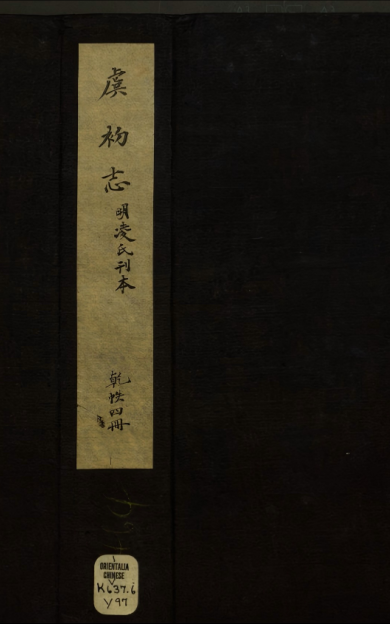 虞初志
明凌氏刊本
乾帙四冊
ORIENTALIA
CHINESE
K637.6
Y97